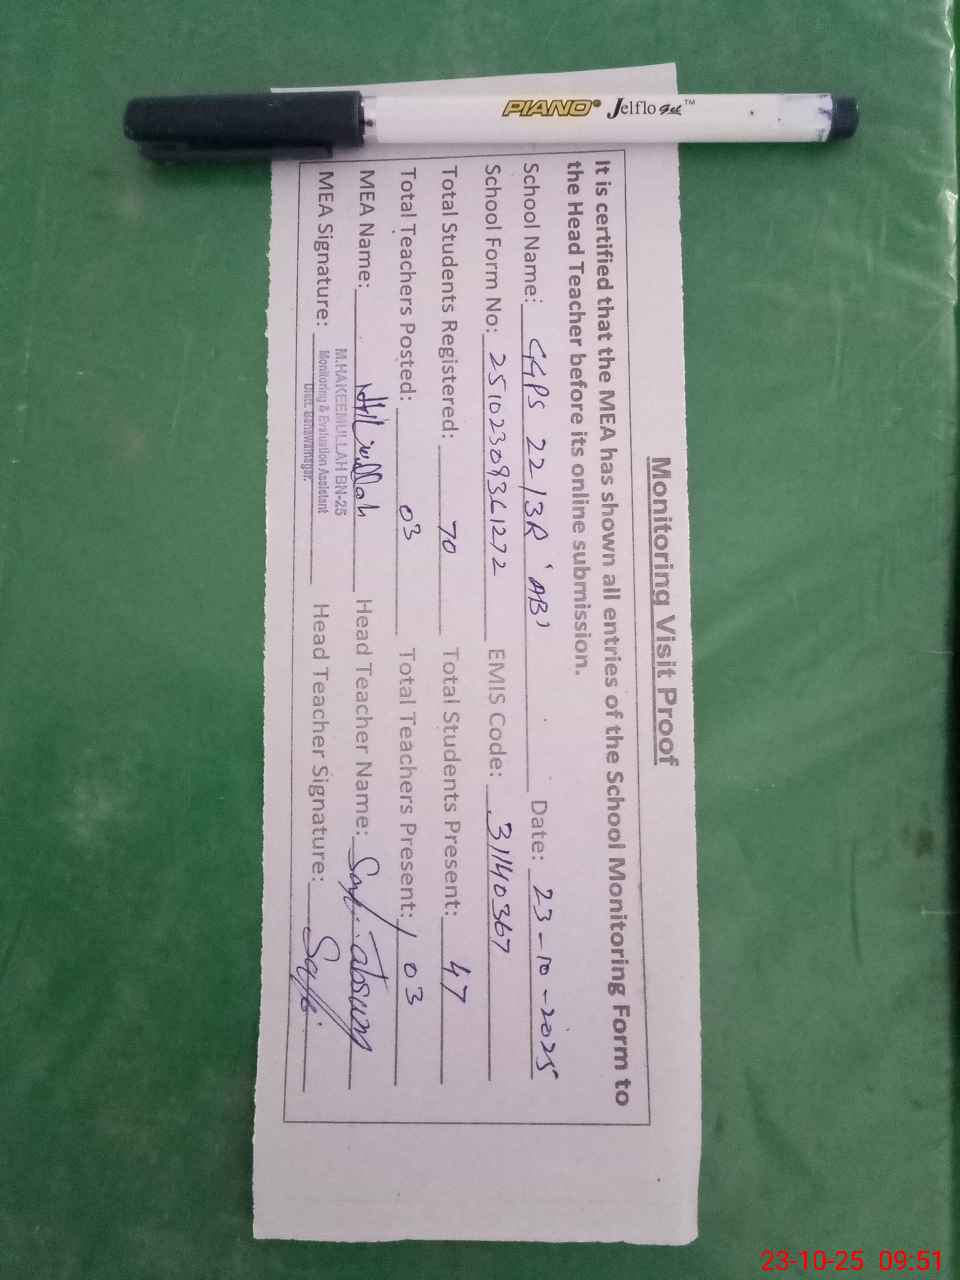 PIANO® Jelflo Gel™
Monitoring Visit Proof
It is certified that the MEA has shown all entries of the School Monitoring Form to
the Head Teacher before its online submission.
School Name: GGPS 22/3R 'AB' Date: 23-10-2025
School Form No: 25102309361272 EMIS Code: 31140367
Total Students Registered: 70 Total Students Present: 47
Total Teachers Posted: 03 Total Teachers Present: 03
MEA Name: Head Teacher Name:
MEA Signature: Head Teacher Signature:
M.HAKEEMULLAH BN-25
Monitoring & Evaluation Assistant
Distt. Bahawalnagar.
23-10-25 09:51